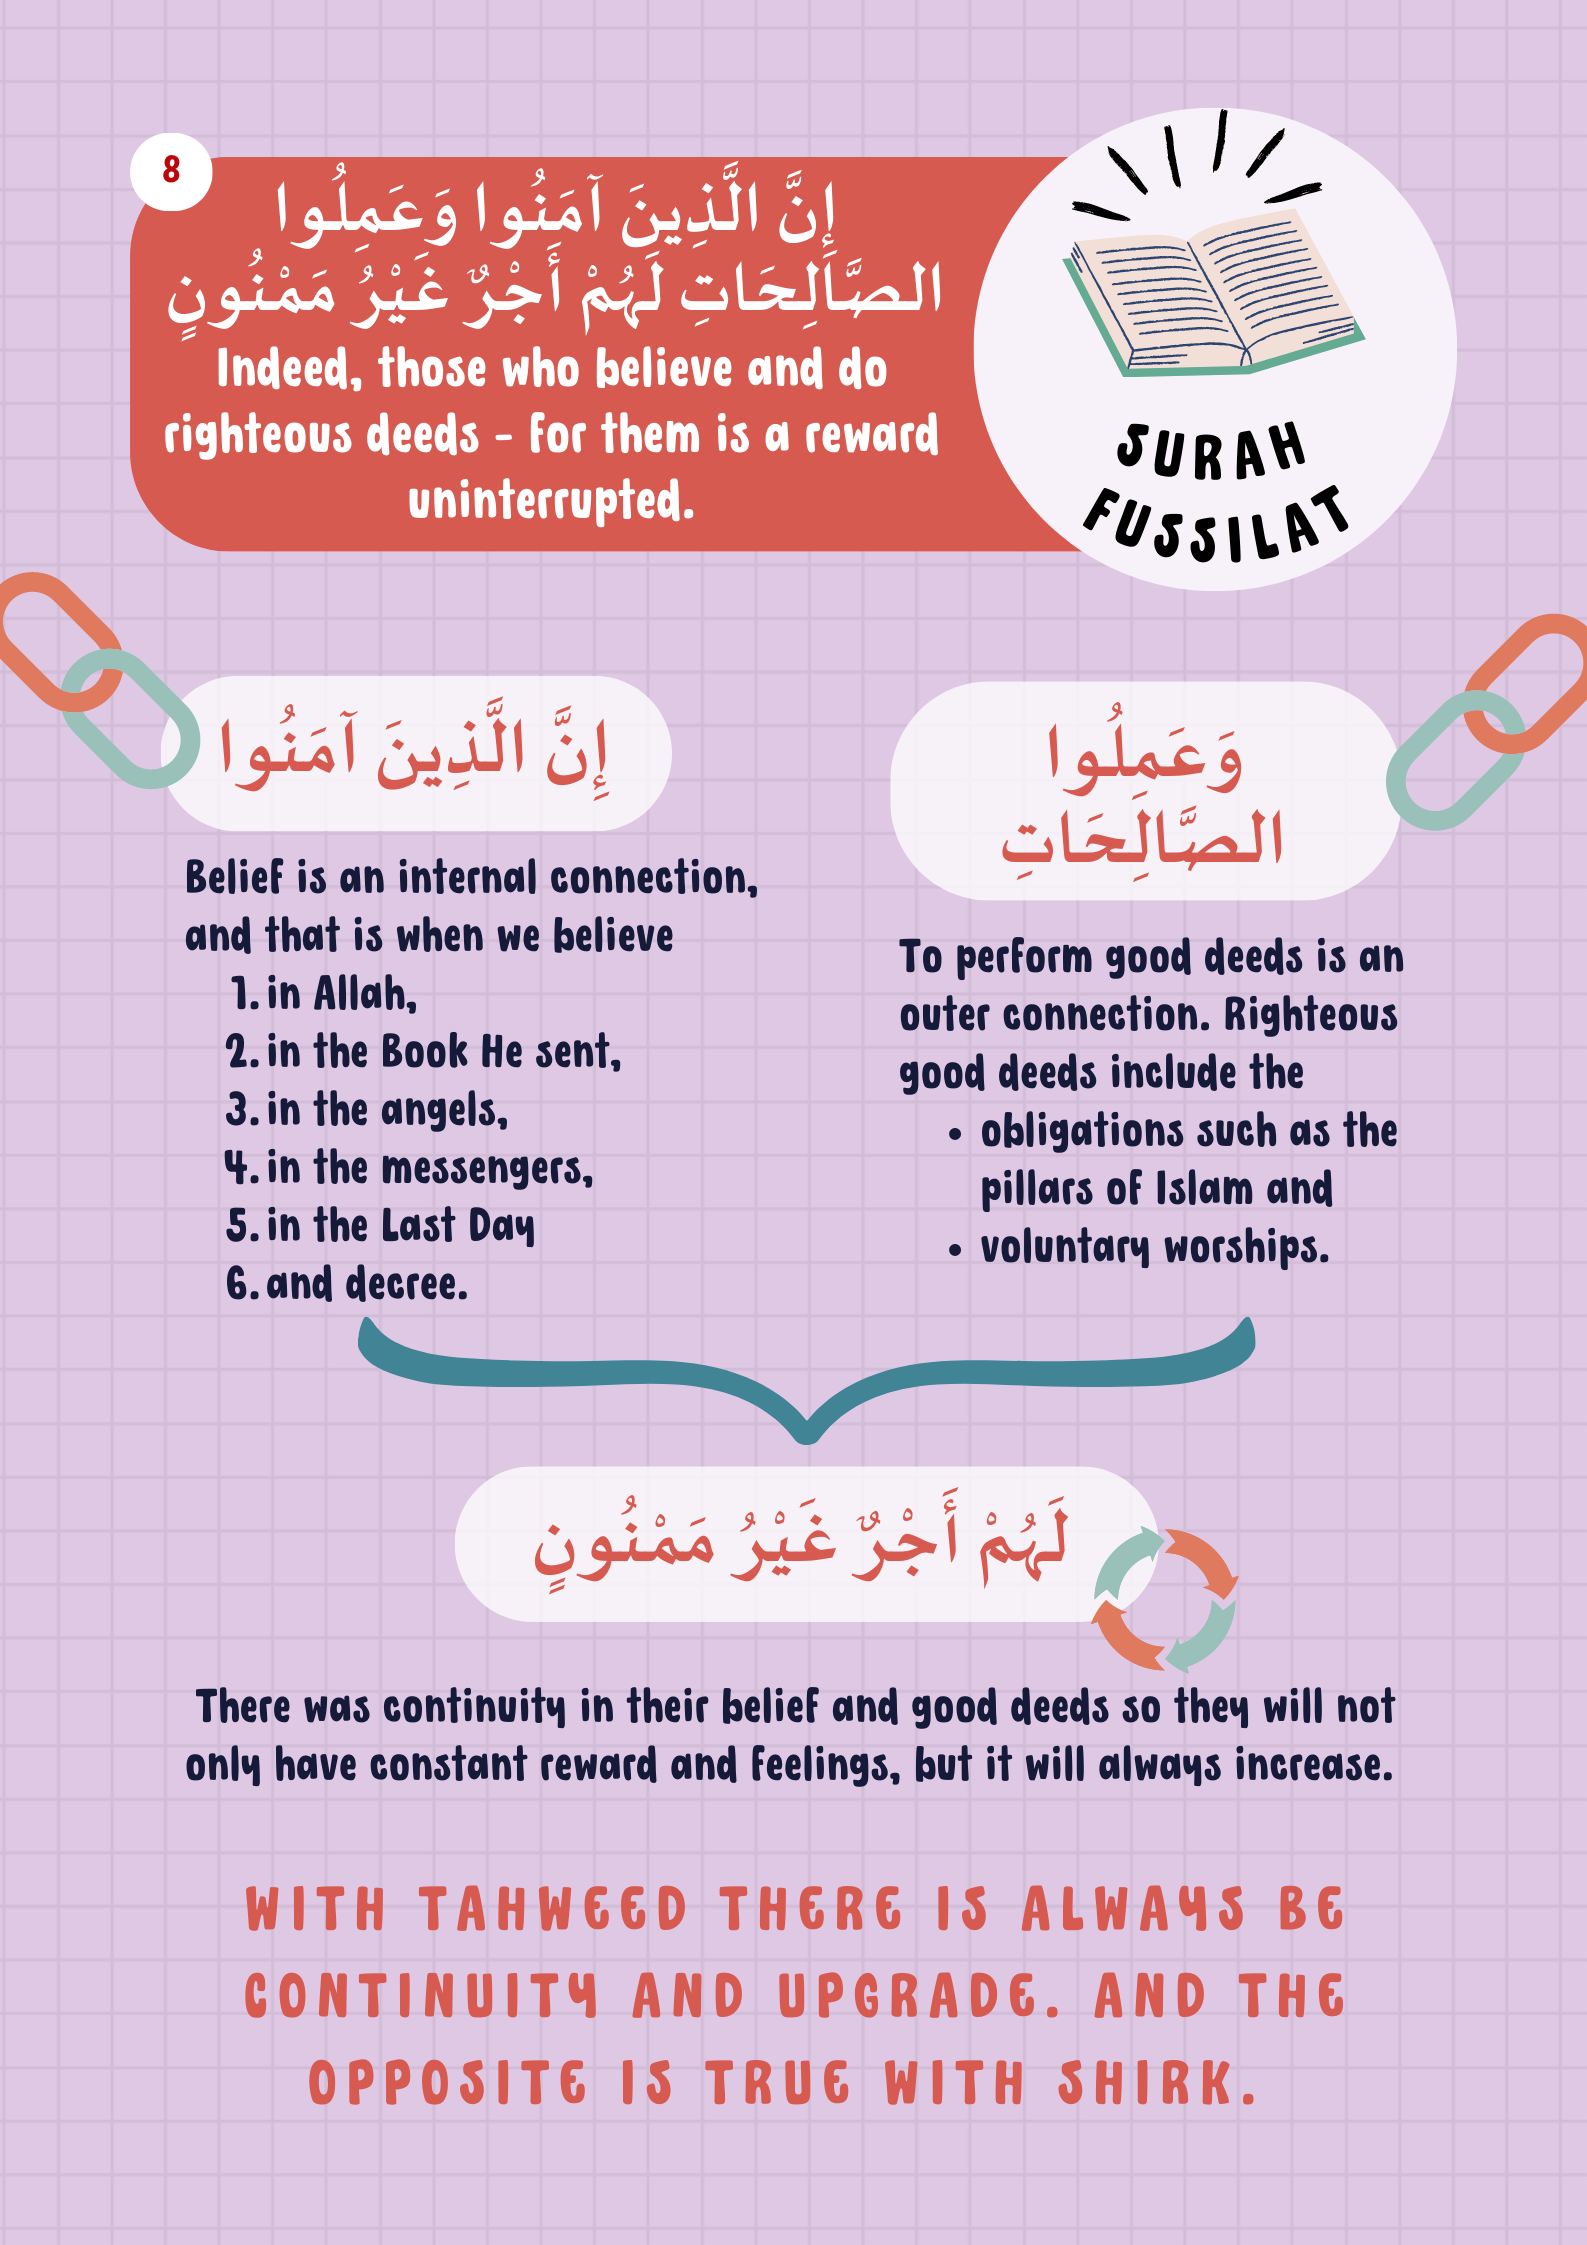 8
إِنَّ الَّذِينَ آمَنُوا وَعَمِلُوا
الصَّالِحَاتِ لَهُمْ أَجْرٌ غَيْرُ مَمْنُونٍ
Indeed, those who believe and do
righteous deeds - for them is a reward
uninterrupted.
SURAH
FUSSILAT
إِنَّ الَّذِينَ آمَنُوا
Belief is an internal connection,
and that is when we believe
1. in Allah,
2. in the Book He sent,
3. in the angels,
4. in the messengers,
5. in the Last Day
6. and decree.
وَعَمِلُوا
الصَّالِحَاتِ
To perform good deeds is an
outer connection. Righteous
good deeds include the
• obligations such as the
pillars of Islam and
• voluntary worships.
لَهُمْ أَجْرٌ غَيْرُ مَمْنُونٍ
There was continuity in their belief and good deeds so they will not
only have constant reward and feelings, but it will always increase.
WITH TAHWEED THERE IS ALWAYS BE
CONTINUITY AND UPGRADE. AND THE
OPPOSITE IS TRUE WITH SHIRK.